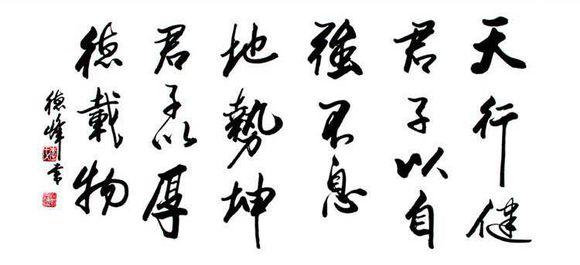 天行健
君子以自
強不息
地勢坤
君子以厚
德載物
德峰書